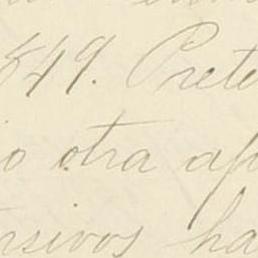 849. Prete
o otra af
rsivos ha